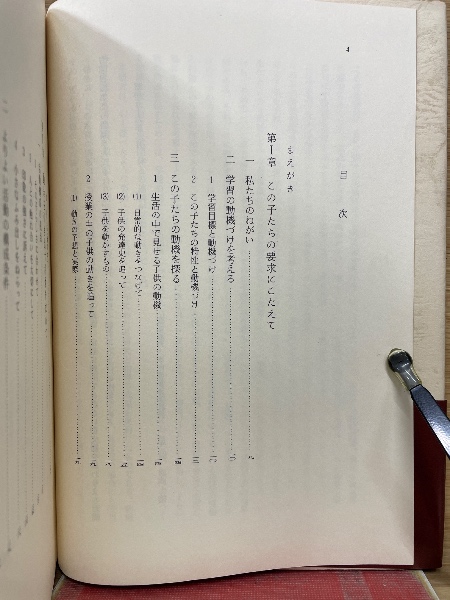 4
目次
まえがき
第1章 この子たちの要求にこたえて
一 私たちのねがい……九
二 学習の動機づけを考える……
1 学習目標と動機づけ……
2 この子たちの特性と動機づけ……
三 この子たちの動機を探る……
1 生活の中で見せる子供の動機……
(1) 日常的な動きをつなげて……
(2) 子供の発達史を追って……
(3) 子供を動かすもの……
2 授業の中の子供の動きを追って……
(1) 動きの予想と実際……